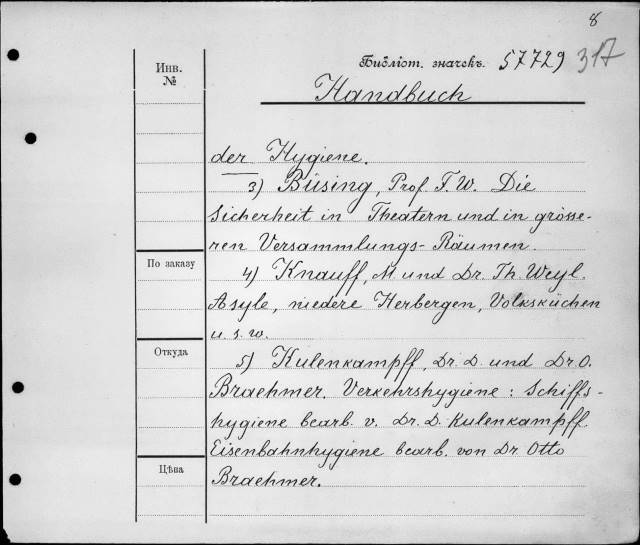 8
Инв. №
Библіот. значекъ. 57729 317
Handbuch
der Hygiene.
3) Büsing, Prof. F. W. Die
Sicherheit in Theatern und in grösse-
ren Versammlungs-Räumen.
По заказу
4) Knauff, M. und Dr. Th. Weyl.
Asyle, niedere Herbergen, Volksküchen
u. s. w.
Откуда
5) Kulenkampff, Dr. D. und Dr. O.
Braehmer. Verkehrshygiene: Schiffs-
hygiene bearb. v. Dr. D. Kulenkampff.
Eisenbahnhygiene bearb. von Dr. Otto
Цѣна
Braehmer.